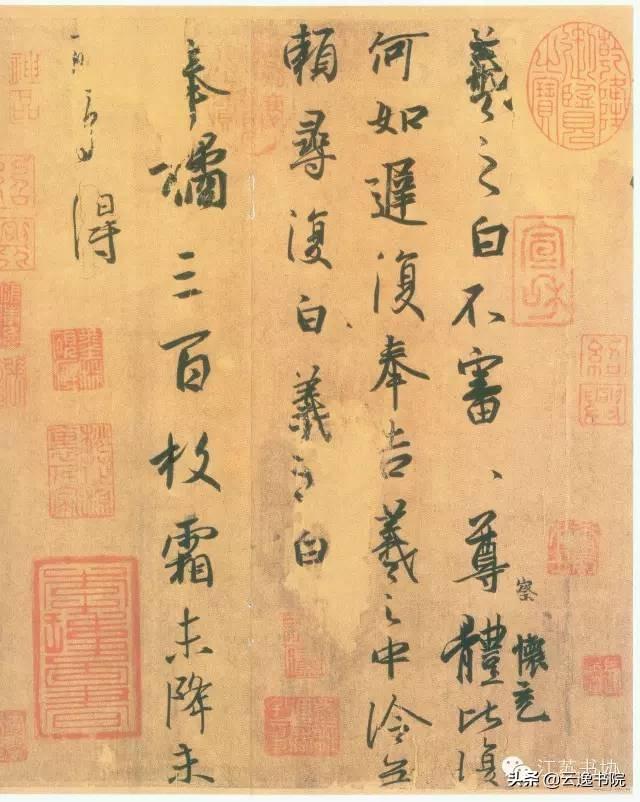 乾隆御覽之寶
宣和
紹興
羲之白不審、、尊體比復
察
懷充
何如遲復奉告羲之中冷無
賴尋復白羲之白
奉橘三百枚霜未降未
可多得
江苏书协
头条 @云逸书院